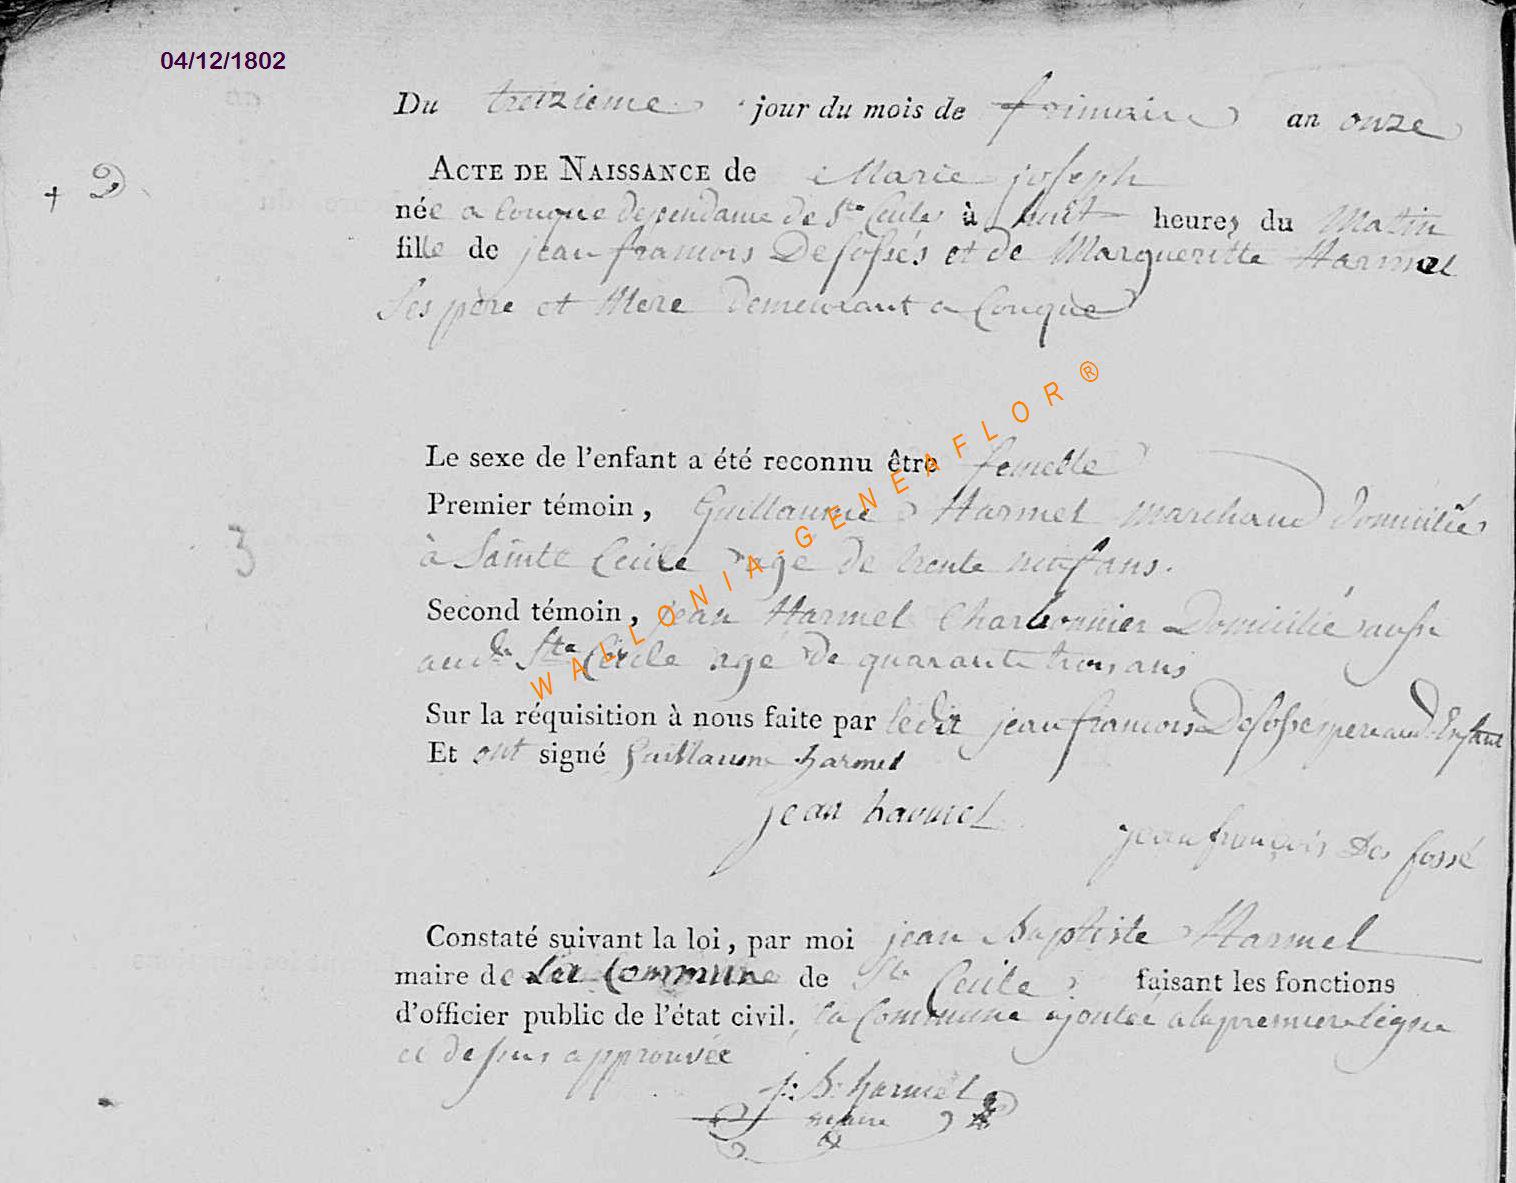 04/12/1802
Du treizieme jour du mois de frimaire an onze
+ D
ACTE DE NAISSANCE de Marie joseph
née a Conque dependame de Ste Cecile à huit heures du Matin
fille de jean francois Desfossés et de Margueritte Harmel
Ses père et Mere demeurant a Conque
Le sexe de l'enfant a été reconnu être femelle
Premier témoin, Guillaume Harmel marchand domicilié
3
à Sainte Cecile agé de trente neuf ans.
Second témoin, jean Harmel Charbonnier Domicilié aussi
audt Ste Cécile agé de quarante trois ans
Sur la réquisition à nous faite par ledit jean francois Desfossé pere aud. Enfant
Et ont signé Guillaume harmel
jean harmel
jean françois Des fossé
Constaté suivant la loi, par moi jean Baptiste Harmel
maire de La Commune de Ste Cecile faisant les fonctions
d'officier public de l'état civil. la Commune ajoutée a la premiere ligne
ci dessus approuvée
J: B. harmel
maire
WALLONIA-GENEAFLOR ®